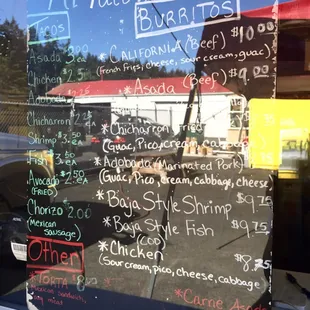 Tacos
Asada 2.00 ea
Chicken 2.25
Chicharron 2.25 ea
Shrimp $3.50 ea
Fish 3.50 ea
Avocado $2.50 ea
(FRIED)
Chorizo 2.00
(Mexican
sausage)
Other
*TORTA
BURRITOS
*CALIFORNIA (Beef) $10.00
(french frys, cheese, sour cream, guac)
*Asada (Beef) $9.00
*Chicharron
(Guac, Pico, cream, cabbage)
*Adobada (Marinated Pork)
(Guac, Pico, cream, cabbage, cheese
*Baja Style Shrimp $9.75
*Baja Style Fish $9.75
(COD)
*Chicken 8.75
(Sour cream, pico, cheese, cabbage)
*Carne Asada